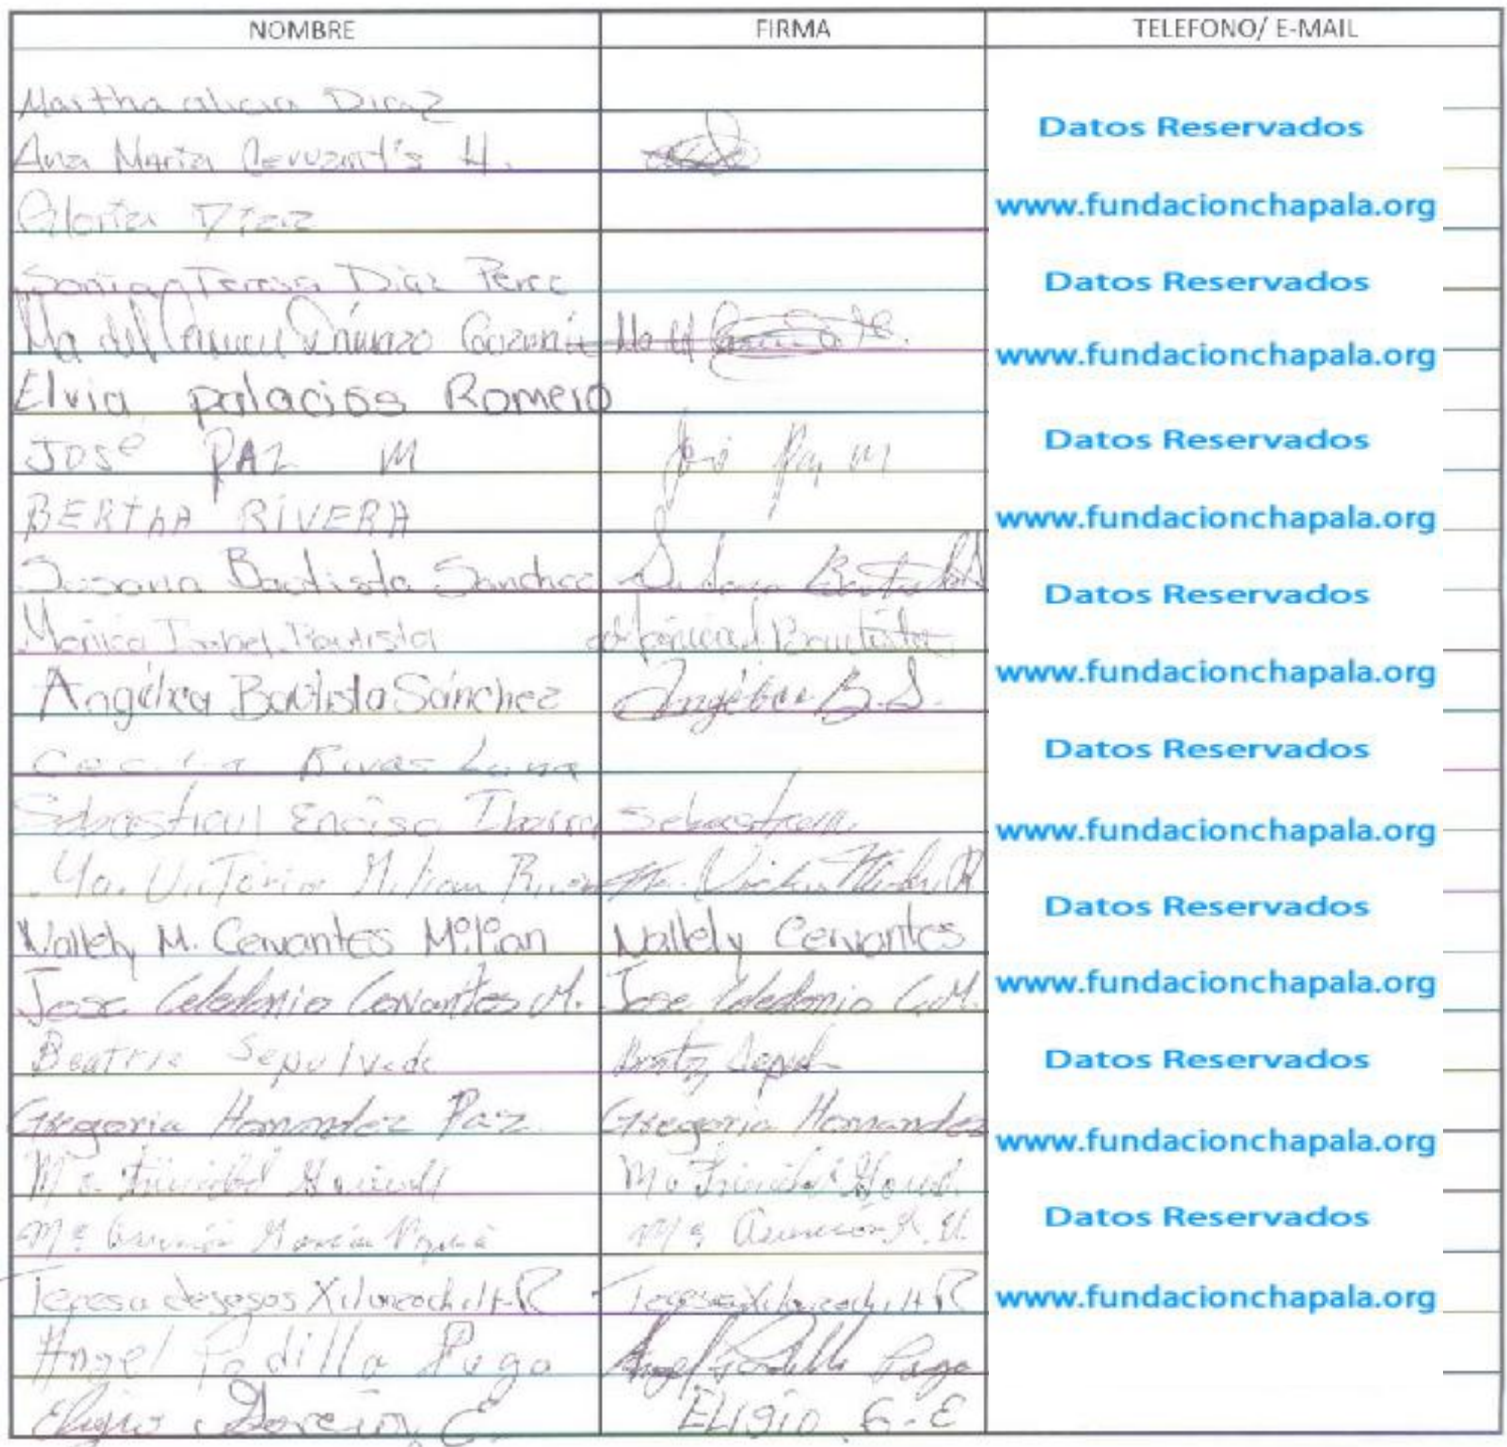 NOMBRE FIRMA TELEFONO/ E-MAIL
Martha alicia Diaz
Datos Reservados
Ana Maria Cervant's H.
Gloria Díaz
www.fundacionchapala.org
Sonia Teresa Diaz Perez
Datos Reservados
Ma del Carmen Ma del
www.fundacionchapala.org
Elvia palacios Romero
JOSÉ PAZ M José Paz M
Datos Reservados
BERTHA RIVERA
www.fundacionchapala.org
Susana Bautista Sanchez Susana Bautista
Datos Reservados
Monica Isabel Bautista Monica Bautista
www.fundacionchapala.org
Angélica Bautista Sánchez Angélica B.S.
Cecilia Rivas Luna
Datos Reservados
Sebastian Enciso Ibarra Sebastian
www.fundacionchapala.org
Ma. Victoria Milian
Datos Reservados
Nallely M. Cervantes Milian Nallely Cervantes
Jose Celedonio Cervantes M. Jose Celedonio C.M.
www.fundacionchapala.org
Beatriz Sepulveda
Datos Reservados
Gregoria Hernandez Paz Gregoria Hernandez
www.fundacionchapala.org
Ma Trinidad Ma Trinidad
Datos Reservados
Ma Asunción García Ma Asunción
Teresa dejesos Xilonzochilt R Teresa Xilonzochilt R
www.fundacionchapala.org
Angel Padilla Puga Angel Padilla Puga
Eligio García E. ELIGIO G.E